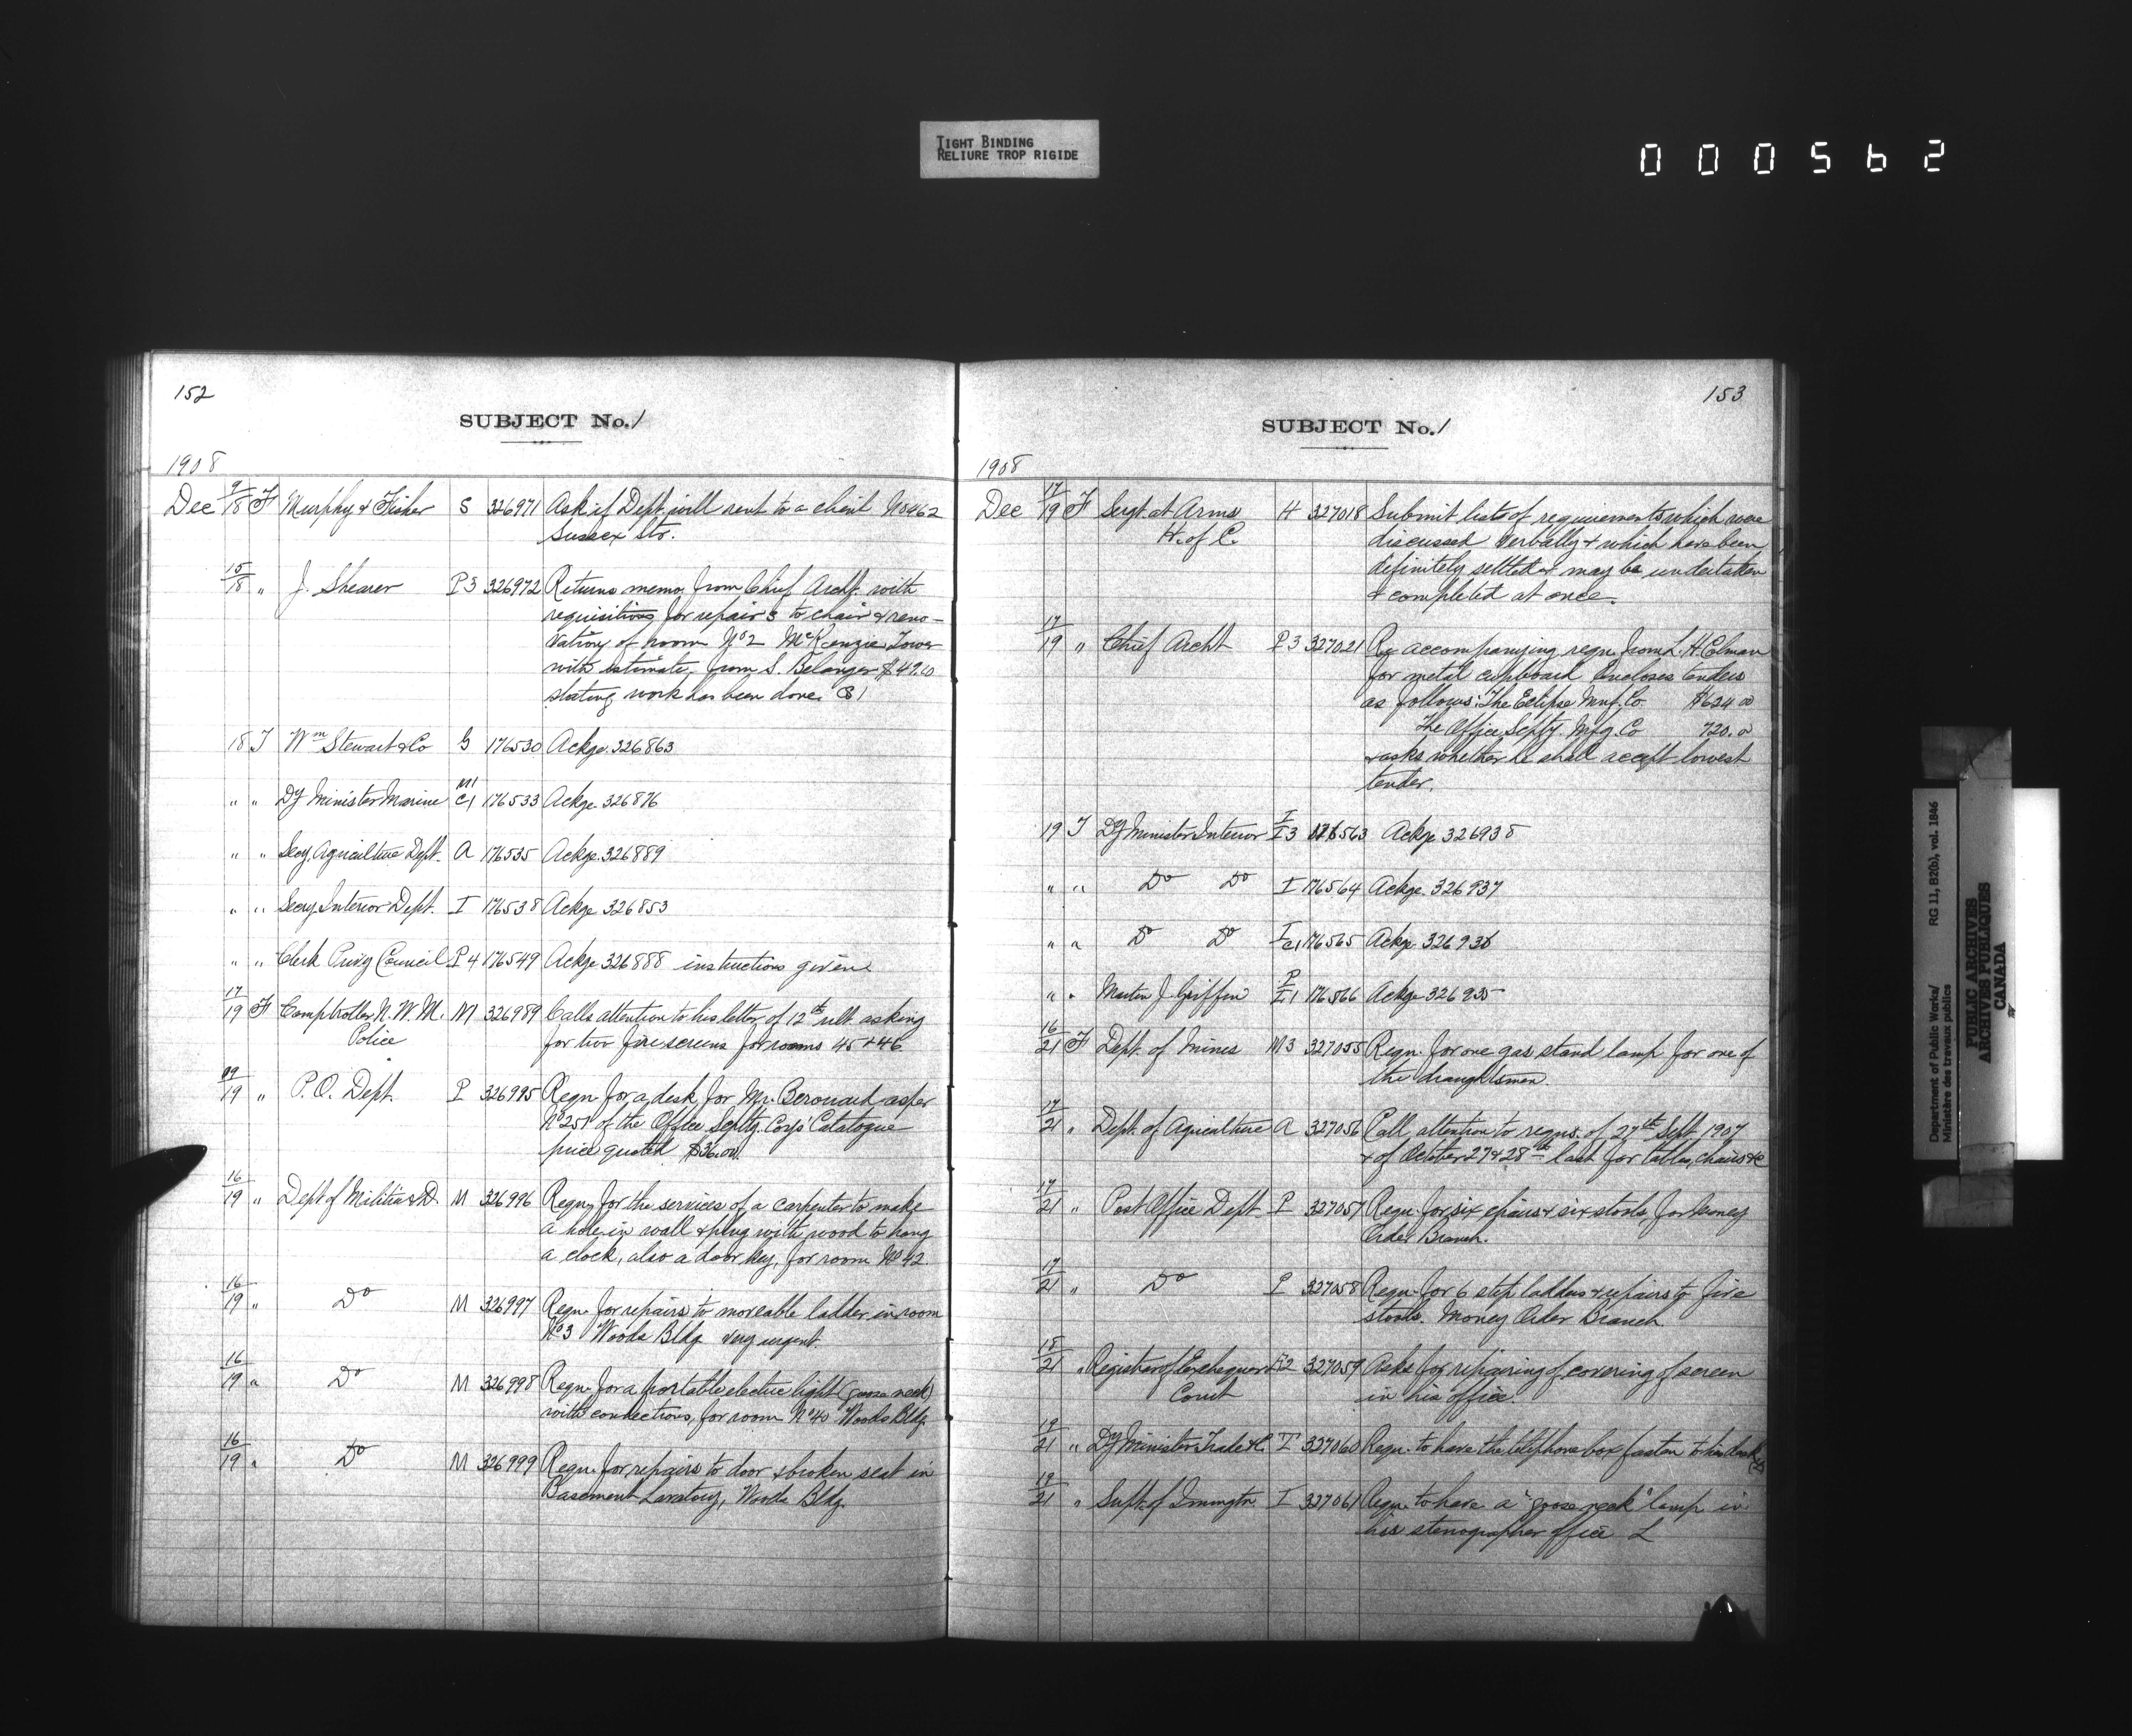 TIGHT BINDING
RELIURE TROP RIGIDE
000562
152
SUBJECT No. 1
1908
Dec 9/18 F Murphy & Fisher S 326971 Ask if Dept. will rent to a client No 462
Sussex Str.
15/18 " J. Shearer P3 326972 Returns memo from Chief Archt. with
requisitions for repairs to chair & reno-
vation of room No 2 McKenzie Tower
with estimate, from S. Belanger $49.00
stating work has been done.
18 T Wm Stewart & Co G 176530 Ackge. 326863
" " Dy Minister Marine M1 C1 176533 Ackge 326876
" " Secy. Agriculture Dept. A 176535 Ackge. 326889
" " Secy Interior Dept. I 176538 Ackge 326853
" " Clerk Privy Council P4 176549 Ackge 326888 instructions given
17/19 F Comptroller N. W. M. M 326989 Calls attention to his letter of 12th ult. asking
Police for two fire screens for rooms 45 & 46
19 " P. O. Dept. P 326995 Reqn for a desk for Mr. as per
of the Office Splty. Corp's Catalogue
price quoted $36.00.
16/19 " Dept of Militia & D. M 326996 Reqn for the services of a carpenter to make
a hole in wall & plug with wood to hang
a clock, also a door key, for room No 42.
16/19 " Do M 326997 Reqn. for repairs to moveable ladder in room
No 3 Woods Bldg very urgent.
16/19 " Do M 326998 Reqn. for a portable electric light (goose neck)
with connections, for room No 40 Woods Bldg.
16/19 " Do M 326999 Reqn. for repairs to door & broken seat in
Basement Lavatory, Woods Bldg.
153
SUBJECT No. 1
1908
Dec 17/19 F Sergt. at Arms H 327018 Submit lists of requirements which were
H. of C. discussed verbally & which have been
definitely settled & may be undertaken
& completed at once.
17/19 " Chief Archt P3 327021 Re accompanying reqn. from L. H. Colman
for metal cupboard Encloses tenders
as follows: The Eclipse Mnf. Co. $624.00
The Office Splty. Mfg. Co 720.00
& asks whether he shall accept lowest
tender.
19 T Dy Minister Interior I I3 176563 Ackge 326938
" " Do Do I 176564 Ackge. 326937
" " Do Do I C1 176565 Ackge. 326936
" " Martin J. Griffin 176566 Ackge 326935
16/21 F Dept. of Mines M3 327055 Reqn. for one gas stand lamp for one of
the draughtsmen.
17/21 " Dept. of Agriculture A 327056 Call attention to reqns. of 27th Sept. 1907
& of October 27 & 28th last for tables, chairs &c
17/21 " Post Office Dept P 327057 Reqn. for six chairs & six stools, for Money
Order Branch.
17/21 " Do P 327058 Reqn. for 6 step ladders & repairs to five
stools. Money Order Branch.
18/21 " Registrar of Exchequer 327059 Asks for repairing of covering of screen
Court in his office.
19/21 " Dy Minister Trade & C. T 327060 Reqn. to have the telephone box fasten to his desk
19/21 " Supt. of Immigtn. I 327061 Reqn. to have a "goose neck" lamp in
his stenographer office L
Department of Public Works/
Ministère des travaux publics
RG 11, B2(b), vol. 1846
PUBLIC ARCHIVES
ARCHIVES PUBLIQUES
CANADA